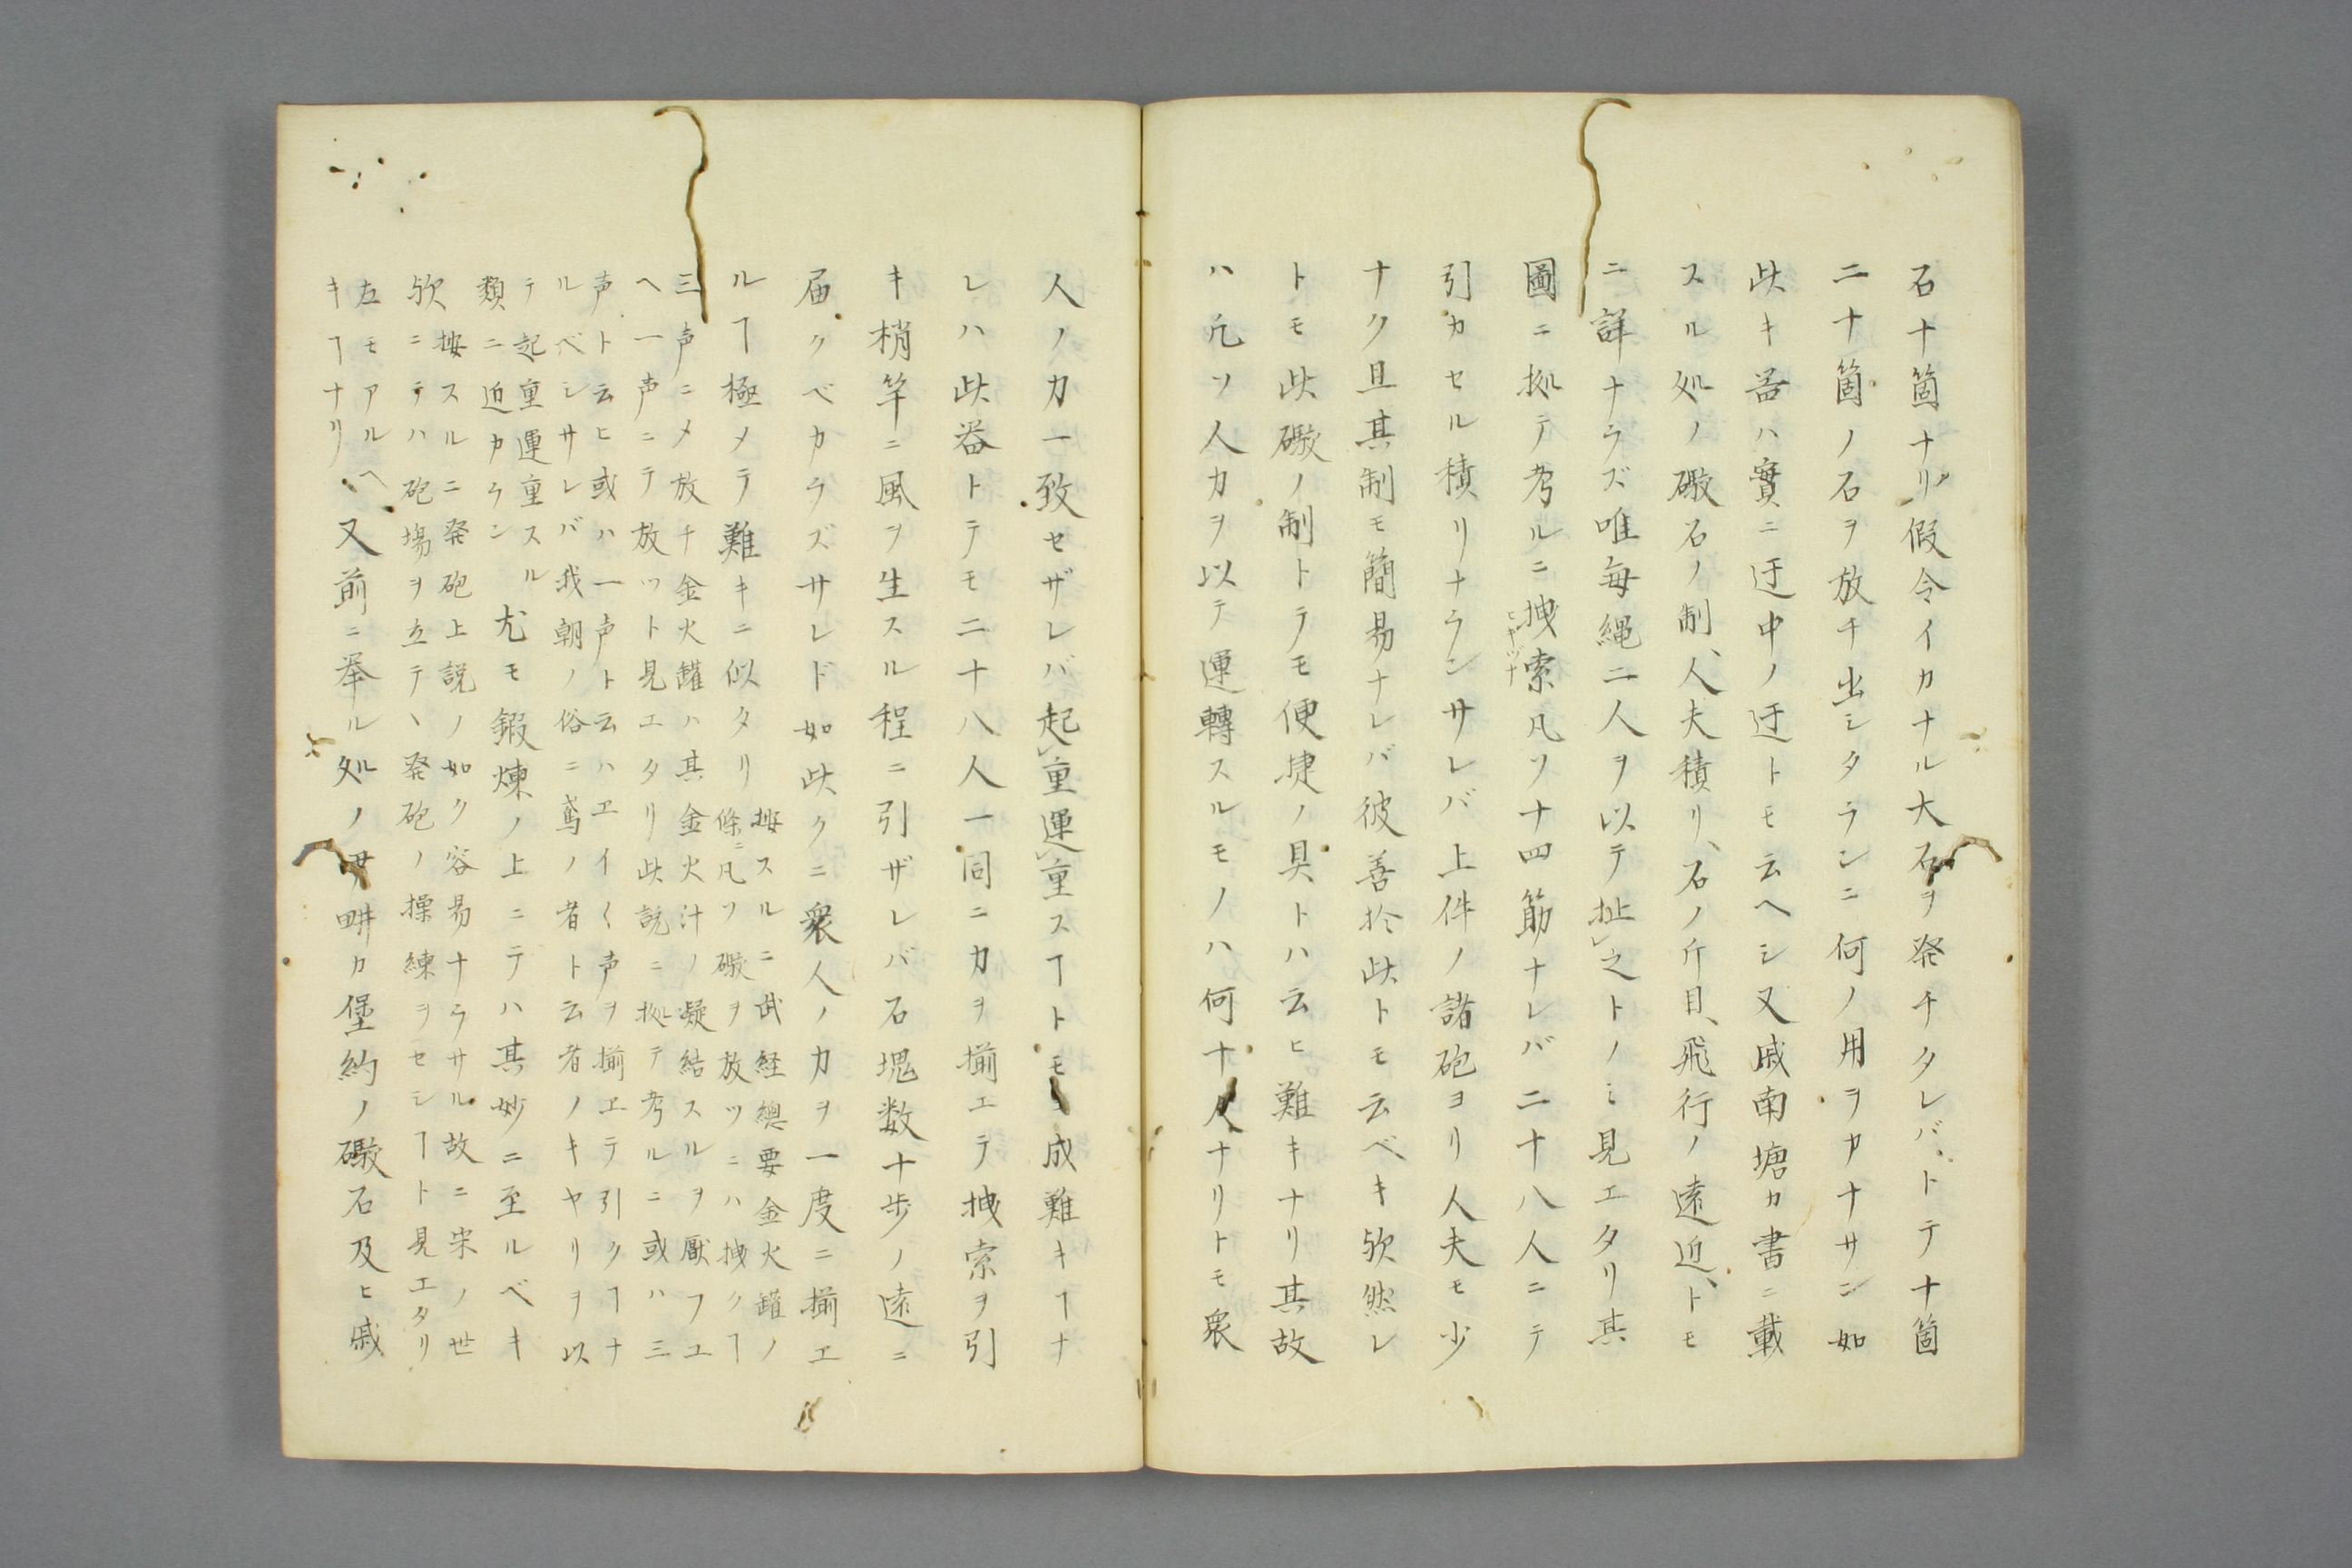 石十箇ナリ假令イカナル大石ヲ発チタレバトテ十箇
二十箇ノ石ヲ放チ出シタランニ何ノ用ヲカナサン如
此キ器ハ實ニ迂中ノ迂トモ云ヘシ又戚南塘カ書ニ載
スル処ノ礮石ノ制、人夫積リ、石ノ斤目、飛行ノ遠近、トモ
ニ詳ナラズ唯毎縄二人ヲ以テ扯㆑之トノミ見エタリ其
圖ニ拠テ考ルニ拽索凡ソ十四筋ナレバ二十八人ニテ
ヒキヅナ
引カセル積リナランサレバ上件ノ諸砲ヨリ人夫モ少
ナク且其制モ簡易ナレバ彼善於此トモ云ベキ欤然レ
トモ此礮ノ制トテモ便捷ノ具トハ云ヒ難キナリ其故
ハ凢ソ人力ヲ以テ運轉スルモノハ何十人ナリトモ衆
人ノ力一致セザレバ起㆑重運㆑重スヿトモ成難キヿナ
レハ此器トテモ二十八人一同ニ力ヲ揃エテ拽索ヲ引
キ梢竿ニ風ヲ生スル程ニ引ザレバ石塊数十歩ノ遠ニ
届クベカラズサレド如此クニ衆人ノ力ヲ一度ニ揃エ
ルヿ極メテ難キニ似タリ
按スルニ武経總要金火罐ノ
條ニ凡ソ礮ヲ放ツニハ拽クヿ
三声ニメ放チ金火罐ハ其金火汁ノ凝結スルヲ厭フユ
ヘ一声ニテ放ツト見エタリ此説ニ拠テ考ルニ或ハ三
声ト云ヒ或ハ一声ト云ハエイ〱声ヲ揃エテ引クヿナ
ルベシサレバ我朝ノ俗ニ鳶ノ者ト云者ノキヤリヲ以
テ起重運重スル
類ニ近カラン
尤モ鍛煉ノ上ニテハ其妙ニ至ルベキ
欤
按スルニ発砲上説ノ如ク容易ナラサル故ニ宋ノ世
ニテハ砲場ヲ立テヽ発砲ノ操練ヲセシヿト見エタリ
左モアルヘ
キヿナリ
又前ニ挙ル処ノ畊カ堡約ノ礮石及ヒ戚